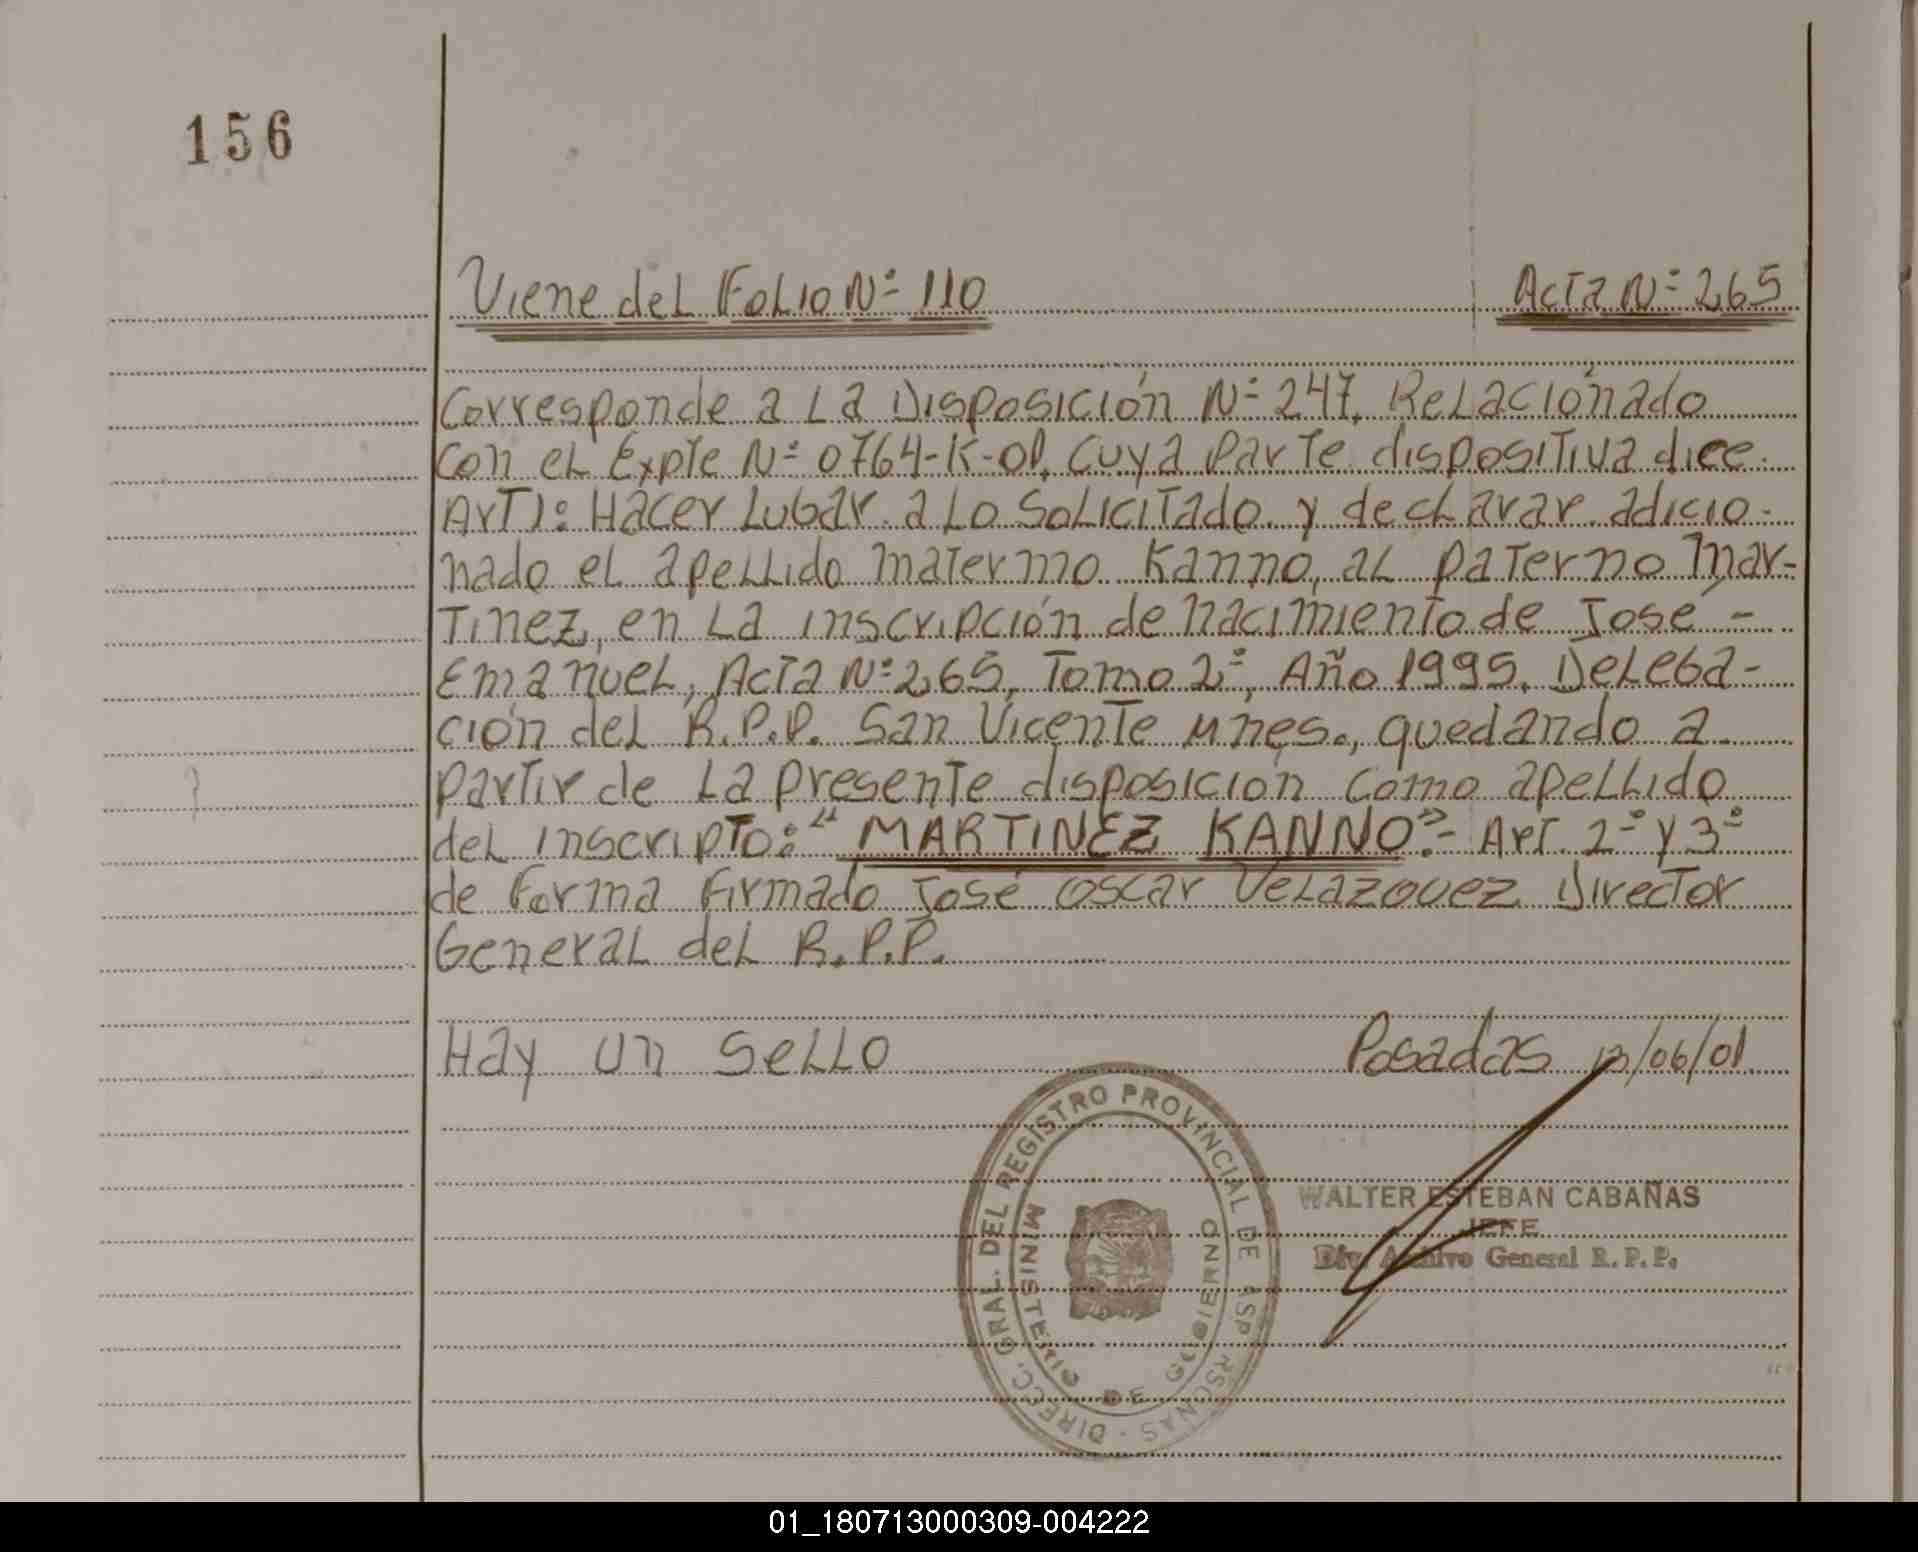 156
Viene del Folio Nº 110 Acta Nº 265
Corresponde a la Disposición Nº 247, Relacionado
con el Expte Nº 0764-K-01, cuya parte dispositiva dice.
Art 1: Hacer lugar a lo solicitado y declarar adicio-
nado el apellido materno Kanno, al paterno Mar-
tinez, en la inscripción de nacimiento de José -
Emanuel, Acta Nº 265, Tomo 2º, Año 1995. Delega-
ción del R.P.P. San Vicente Mnes., quedando a
partir de la presente disposición como apellido
del inscripto: "MARTINEZ KANNO".- Art. 2º y 3º
de forma firmado José Oscar Velazquez Director
General del R.P.P.
Hay un sello Posadas 13/06/01
DIRECC. GRAL. DEL REGISTRO PROVINCIAL DE LAS PERSONAS
MINISTERIO DE GOBIERNO
WALTER ESTEBAN CABAÑAS
JEFE
Div. Archivo General R.P.P.
01_180713000309-004222